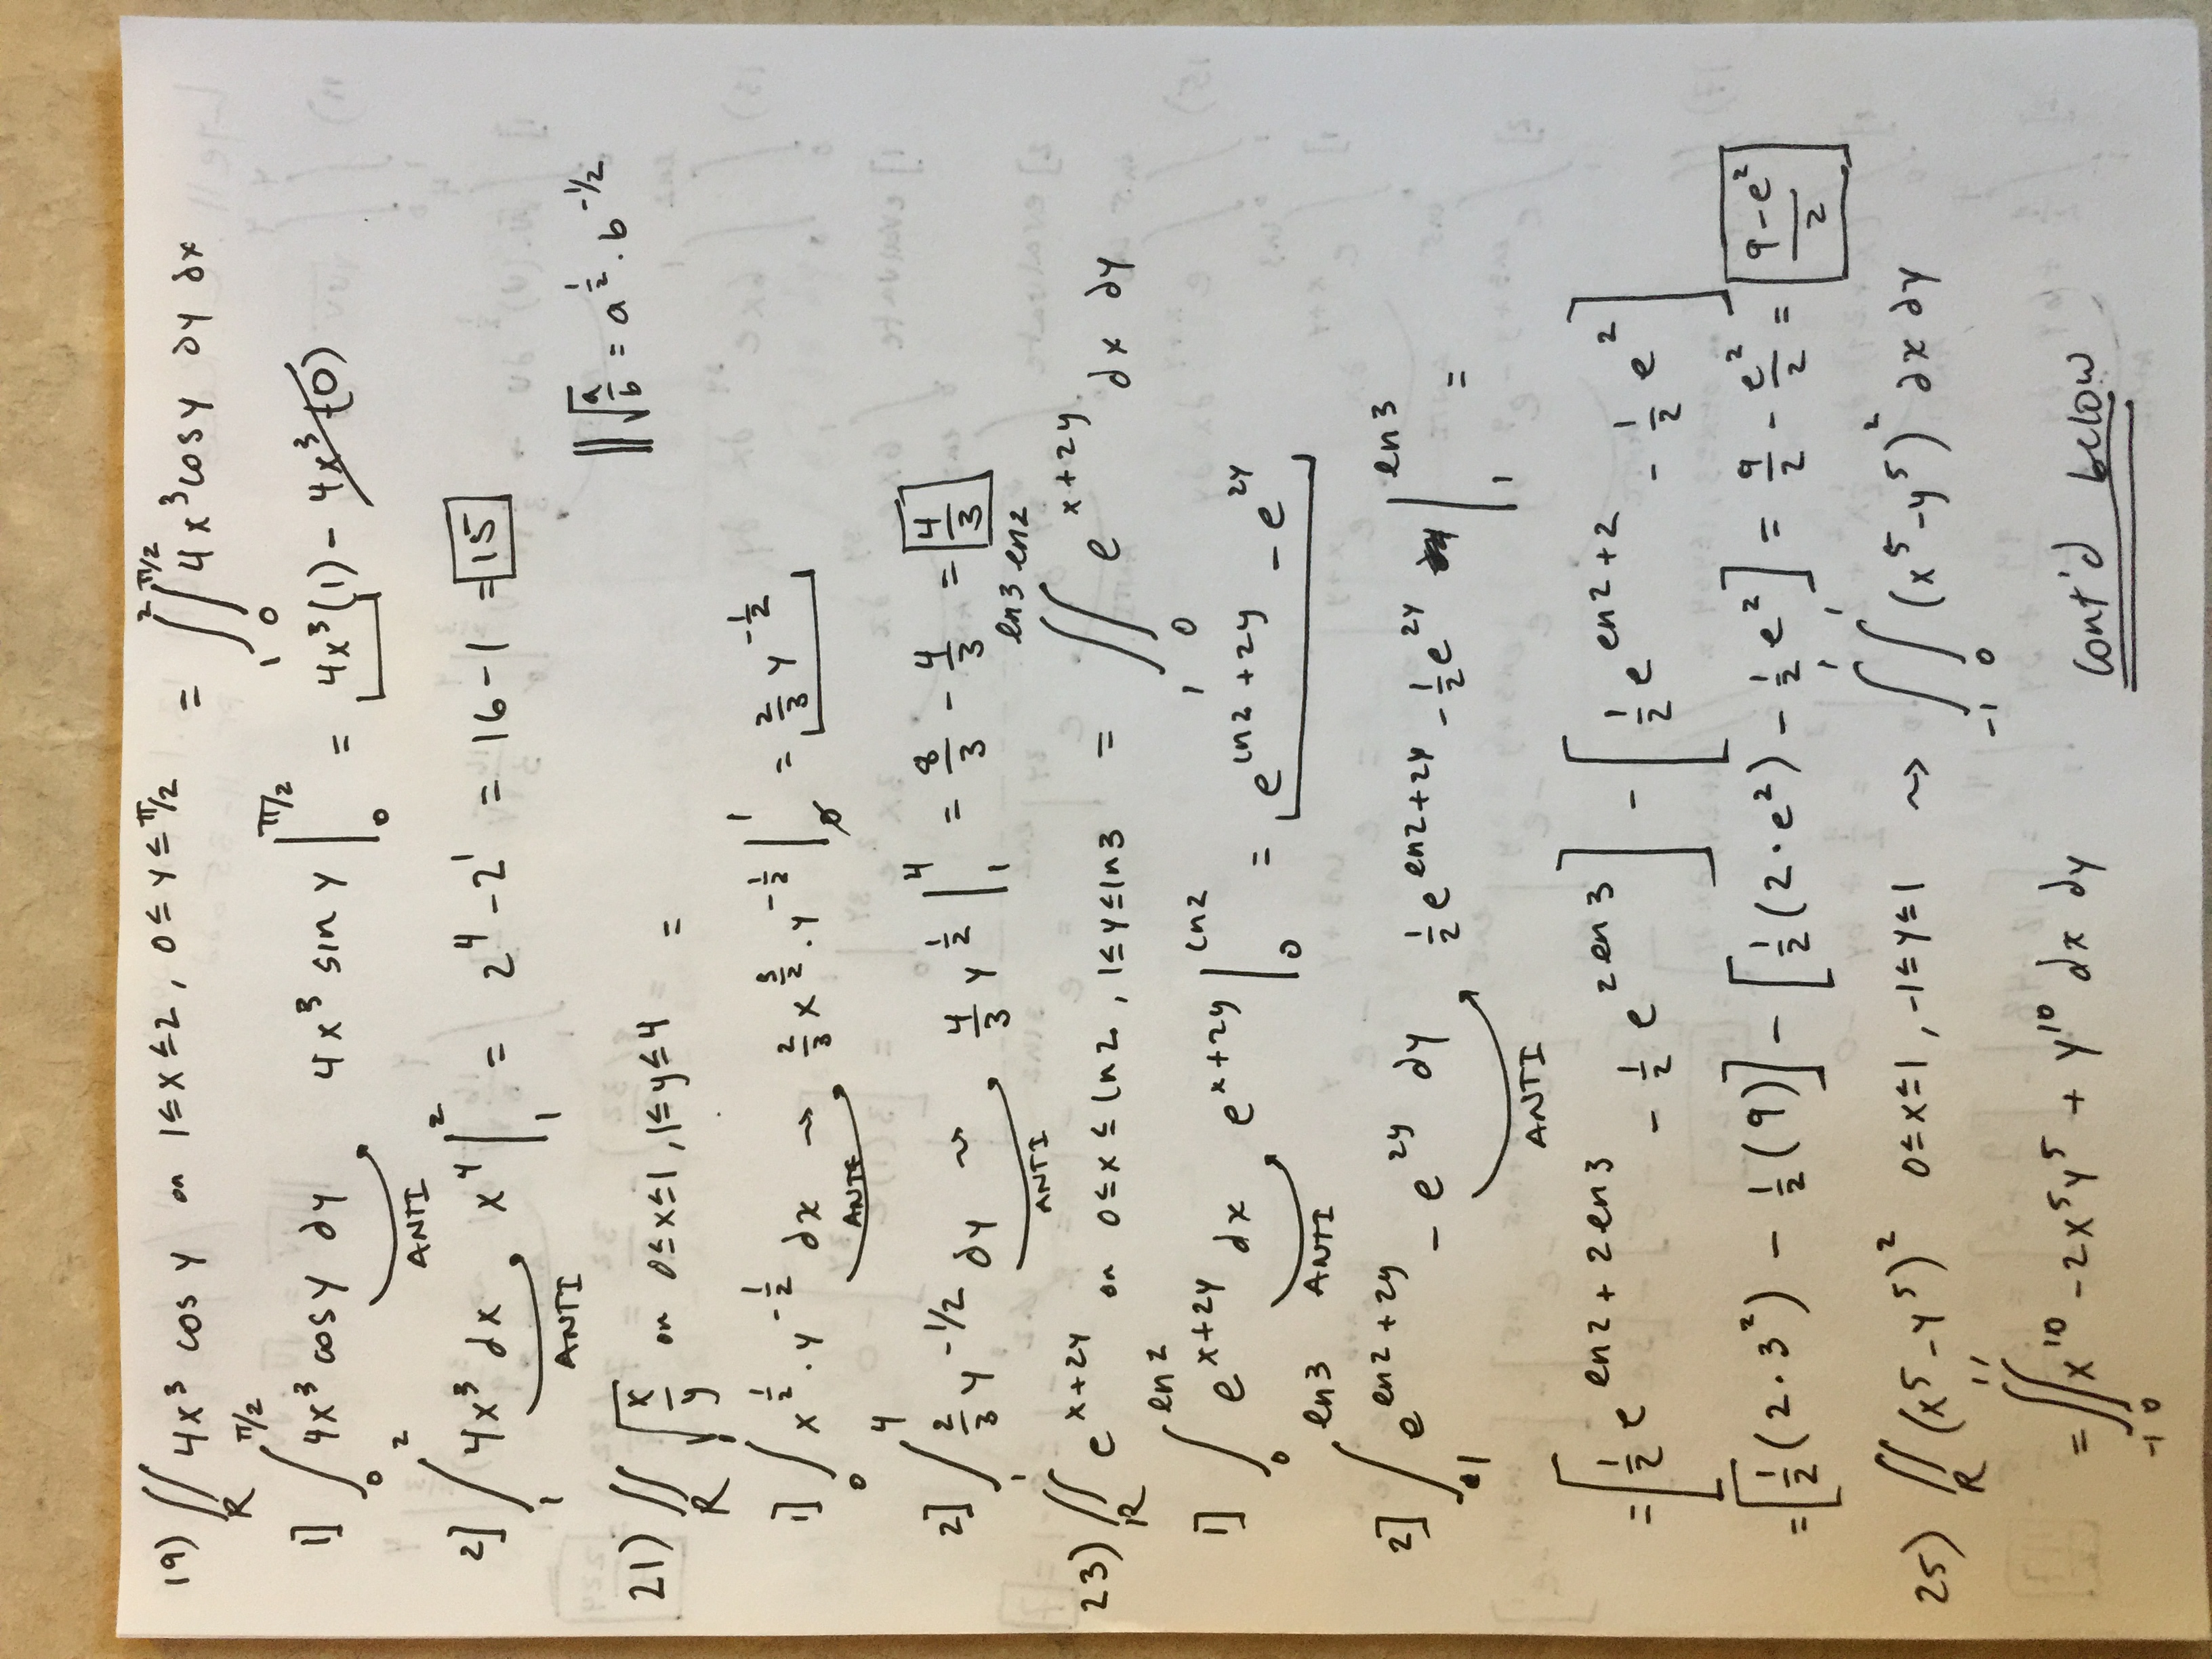 19) ∬_R 4x³ cos y on 1≤x≤2, 0≤y≤π/2 = ∫₁² ∫₀^{π/2} 4x³cosy ∂y ∂x
1] ∫₀^{π/2} 4x³ cosy ∂y 4x³ sin y |₀^{π/2} = 4x³(1) - 4x³(0)
ANTI
2] ∫₁² 4x³ dx x⁴ |₁² = 2⁴ - 2¹ = 16 - 1 = 15
ANTI
‖ √(a/b) = a^{1/2} · b^{-1/2}
21) ∬_R √(x/y) on 0≤x≤1, 1≤y≤4 =
1] ∫₀¹ x^{1/2} · y^{-1/2} ∂x ⇝ 2/3 x^{3/2} · y^{-1/2} |₀¹ = 2/3 y^{-1/2}
ANTI
2] ∫₁⁴ 2/3 y^{-1/2} ∂y ⇝ 4/3 y^{1/2} |₁⁴ = 8/3 - 4/3 = 4/3
ANTI
23) ∬_R e^{x+2y} on 0≤x≤ln2, 1≤y≤ln3 = ∫₁^{ln3} ∫₀^{ln2} e^{x+2y} dx ∂y
1] ∫₀^{ln2} e^{x+2y} dx e^{x+2y} |₀^{ln2} = e^{ln2+2y} - e^{2y}
ANTI
2] ∫₁^{ln3} e^{ln2+2y} - e^{2y} ∂y ½e^{ln2+2y} - ½e^{2y} |₁^{ln3} =
ANTI
= [½ e^{ln2+2ln3} - ½ e^{2ln3}] - [½ e^{ln2+2} - ½ e²]
= [½(2·3²) - ½(9)] - [½(2·e²) - ½ e²] = 9/2 - e²/2 = (9-e²)/2
25) ∬_R (x⁵-y⁵)² 0≤x≤1, -1≤y≤1 ⇝ ∫₋₁¹ ∫₀¹ (x⁵-y⁵)² ∂x ∂y
= ∫₋₁¹ ∫₀¹ x¹⁰ - 2x⁵y⁵ + y¹⁰ dx dy cont'd below